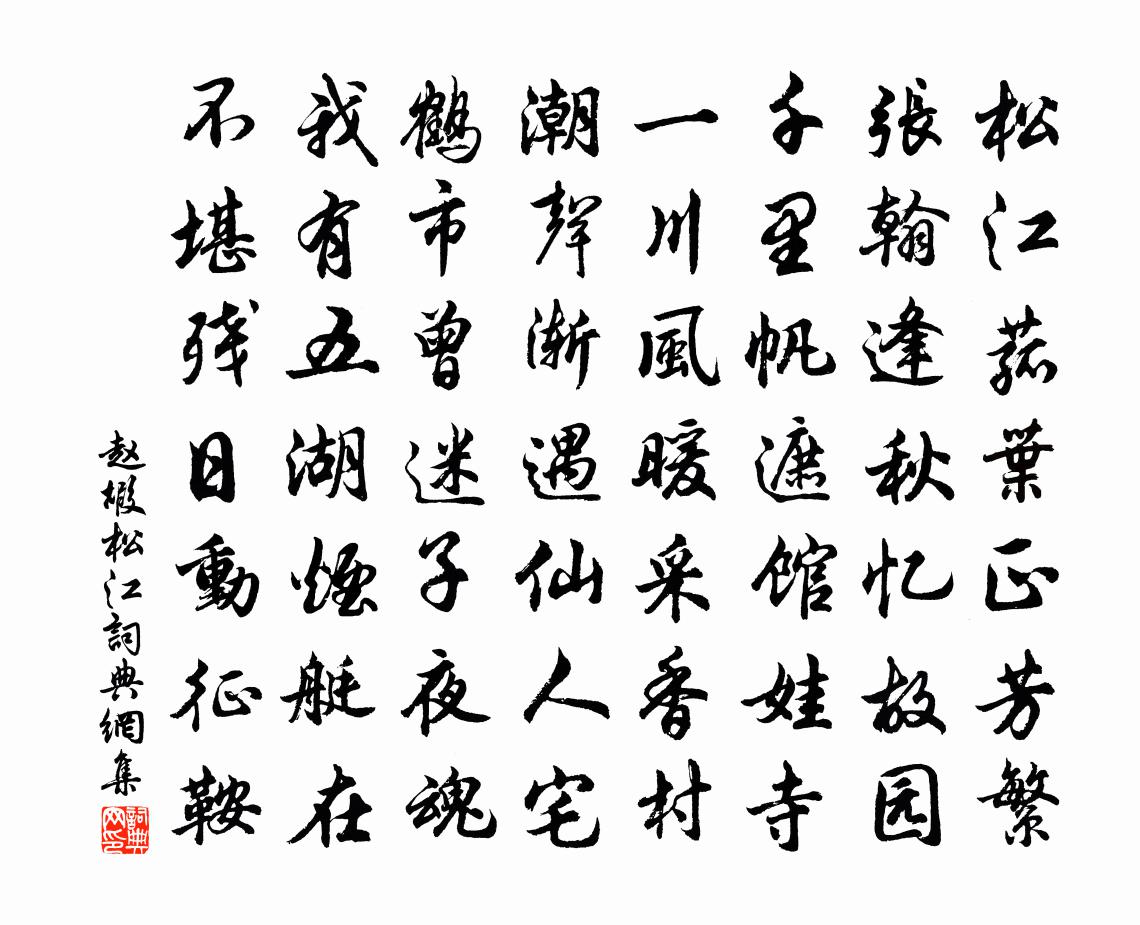 松江菰葉正芳繁
張翰逢秋忆故园
千里帆遮館娃寺
一川風暖采香村
潮聲漸遇仙人宅
鶴市曾迷子夜魂
我有五湖煙艇在
不堪残日動征鞍
赵嘏松江詞典網集
詞典网印